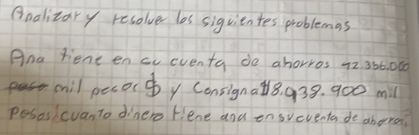 Analizar y resolver los siguientes problemas
Ana tiene en su cuenta de ahorros 42.366.000
mil pesos $ y Consigna $18.939.900 mil
pesos ¿cuanto dinero tiene ana en su cuenta de ahorro.